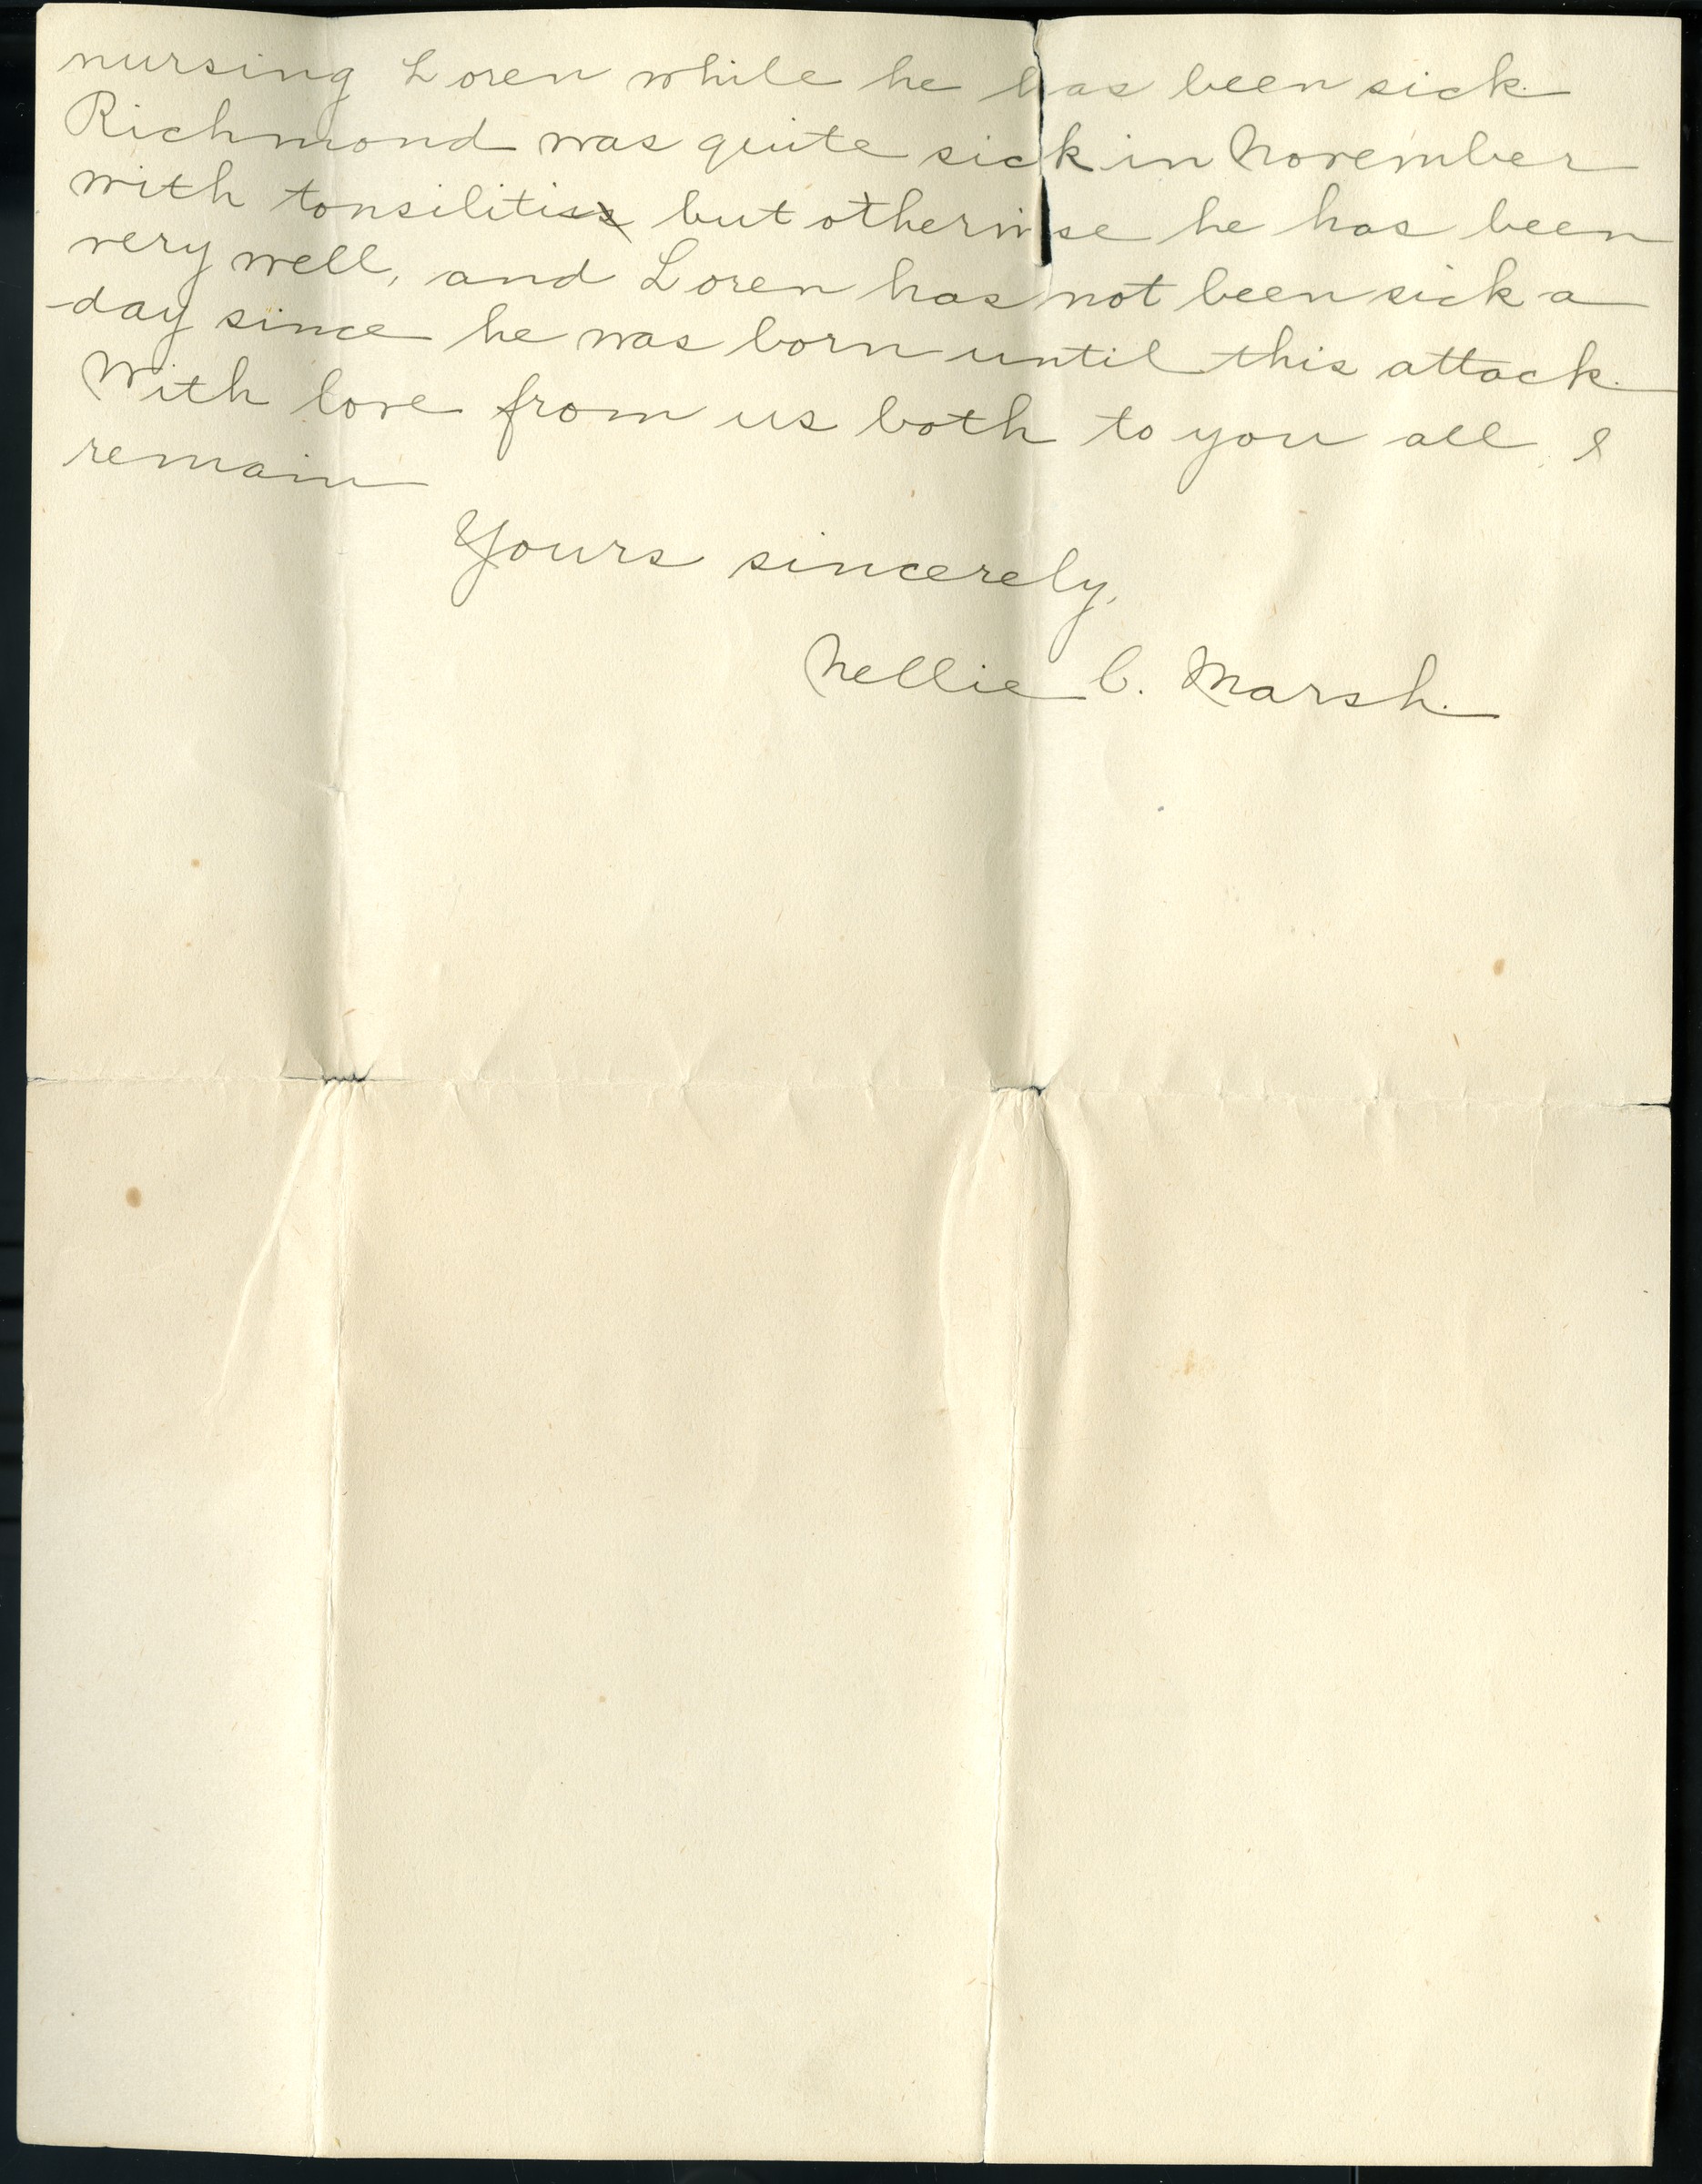 nursing Loren while he has been sick.
Richmond was quite sick in November
with tonsilitis but otherwise he has been
very well, and Loren has not been sick a
day since he was born until this attack.
With love from us both to you all, I
remain
Yours sincerely,
Nellie C. Marsh.